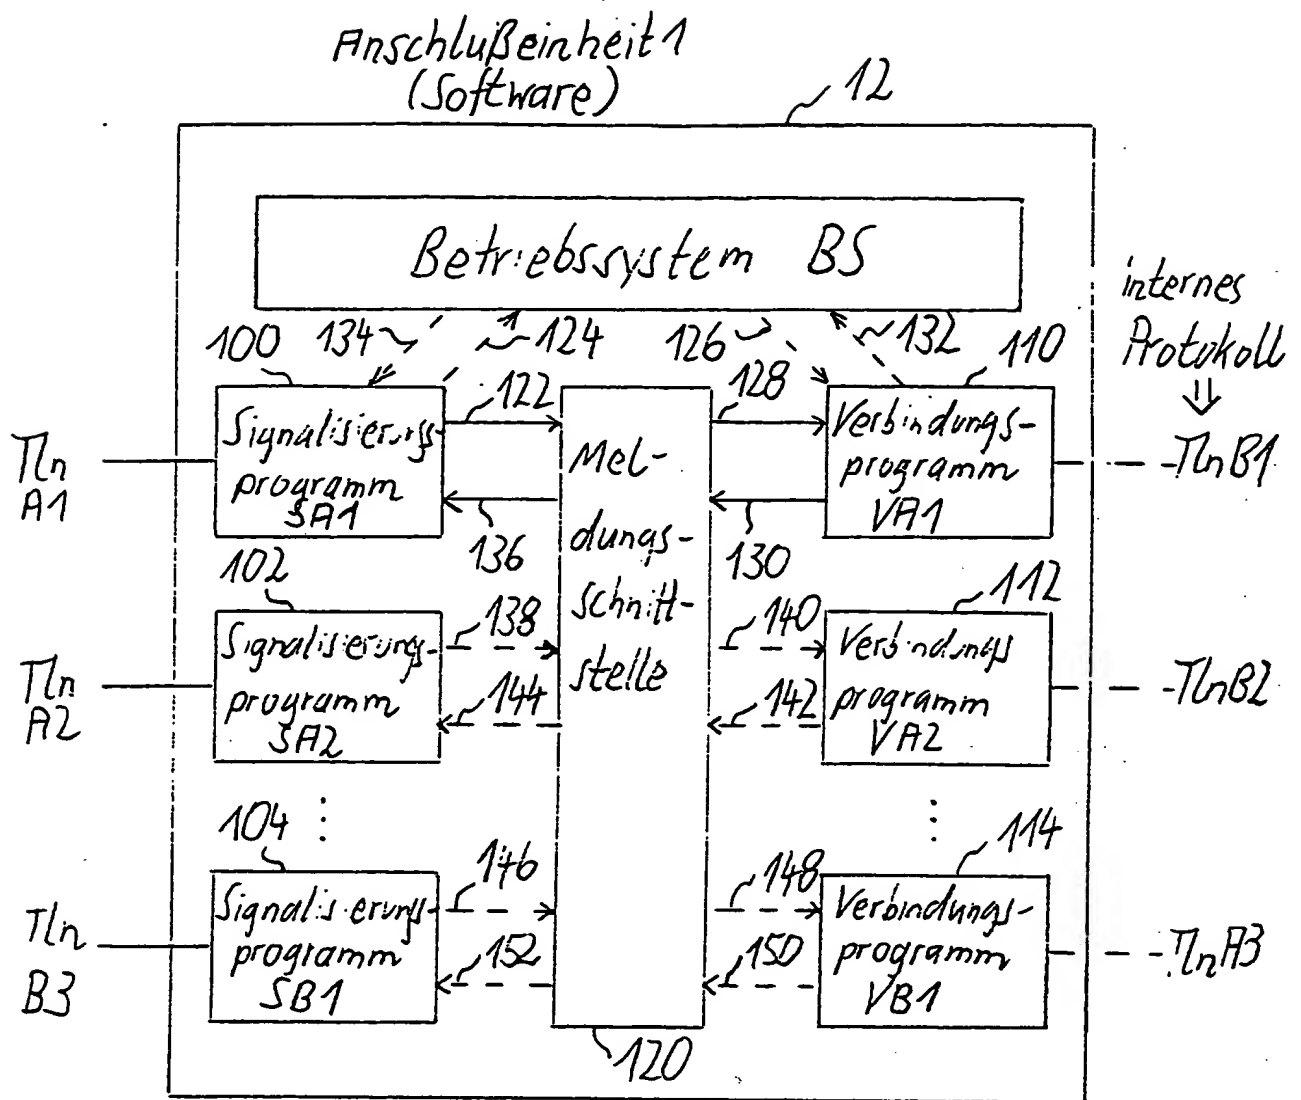 Anschlußeinheit 1
(Software)
12
Betriebssystem BS
internes
Protokoll
⇓
100
134
124
126
132
110
Tln
A1
Signalisierungs-
programm
SA1
122
136
Mel-
dungs-
schnitt-
stelle
128
130
Verbindungs-
programm
VA1
TlnB1
102
138
140
112
Tln
A2
Signalisierungs-
programm
SA2
144
142
Verbindungs
programm
VA2
TlnB2
104
⋮
146
148
⋮
114
Tln
B3
Signalisierungs-
programm
SB1
152
150
Verbindungs-
programm
VB1
TlnA3
120